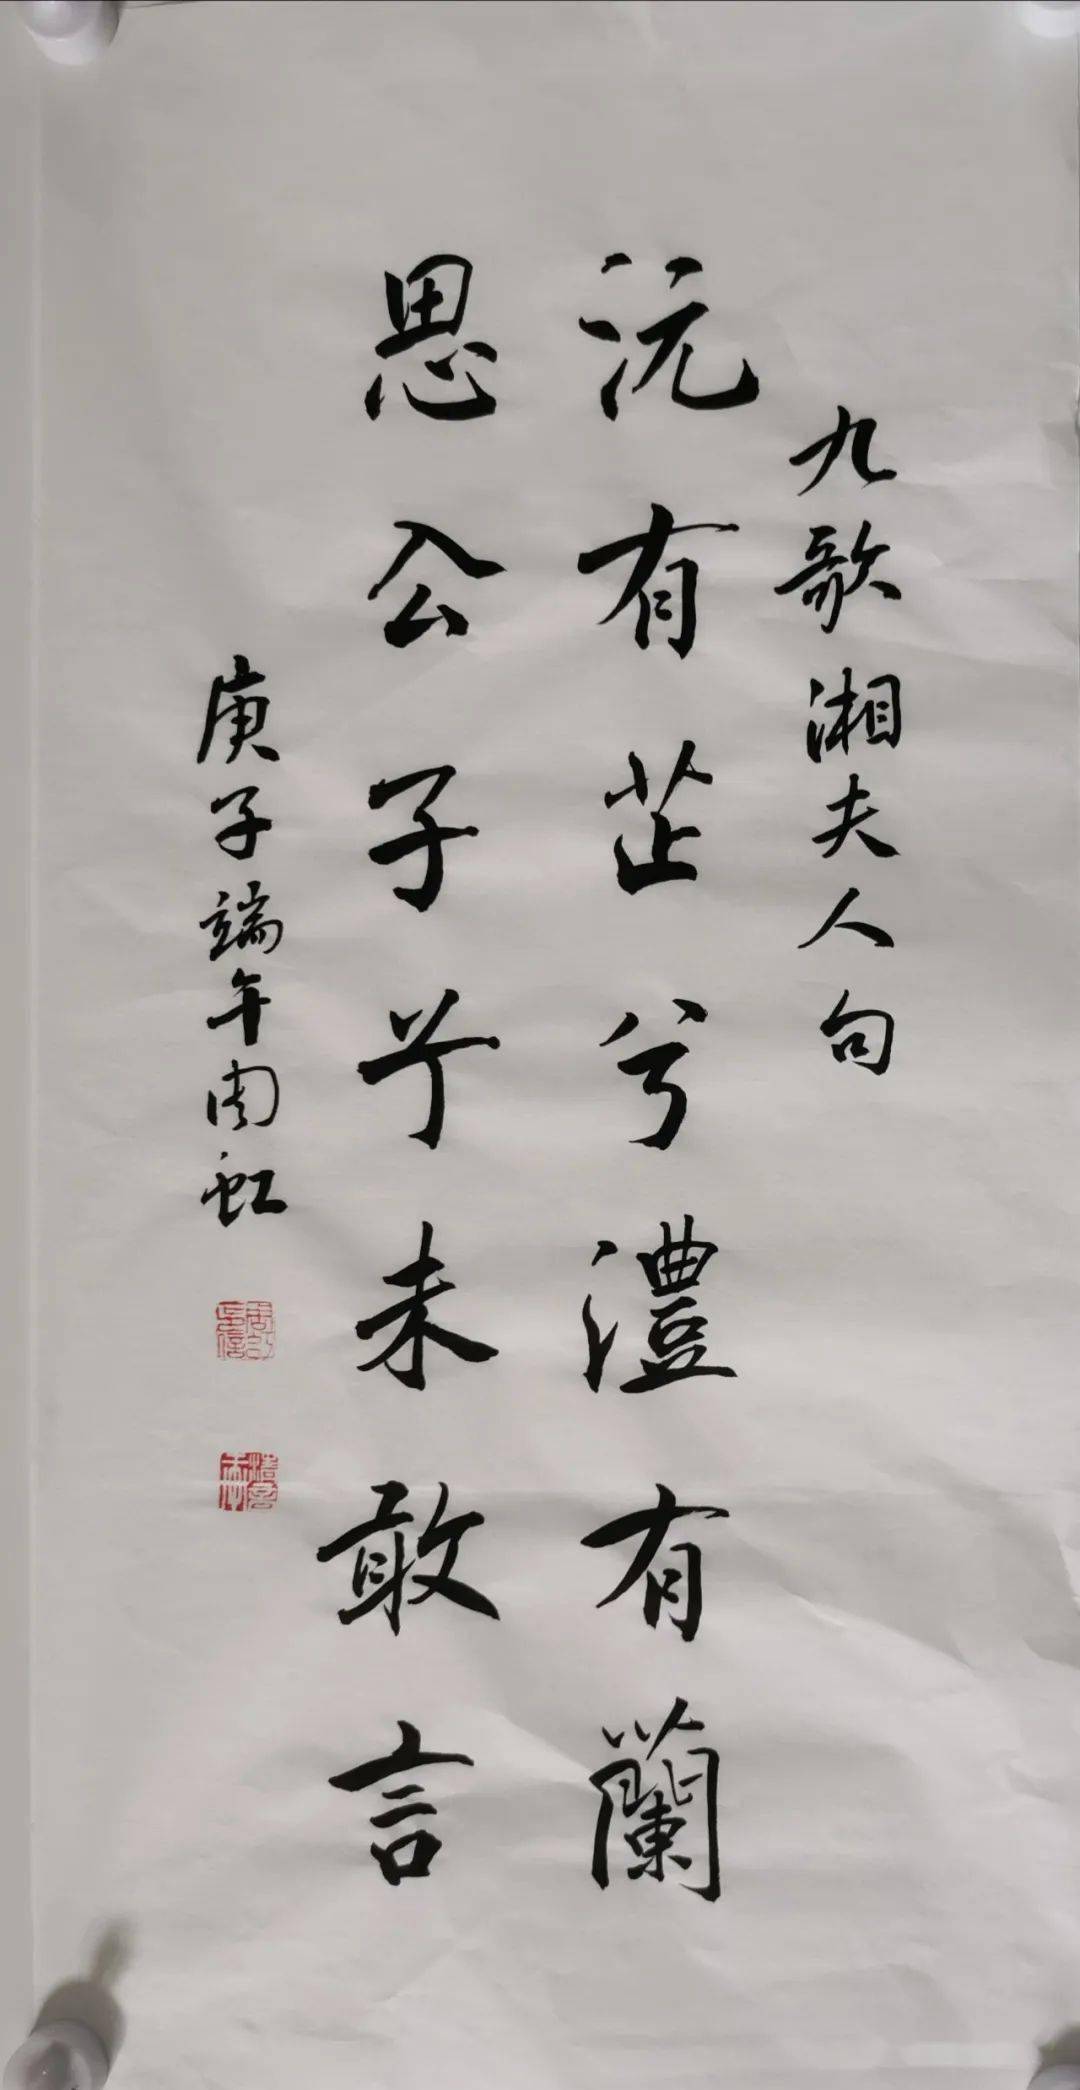 九歌湘夫人句
沅有芷兮澧有蘭
思公子兮未敢言
庚子端午周虹